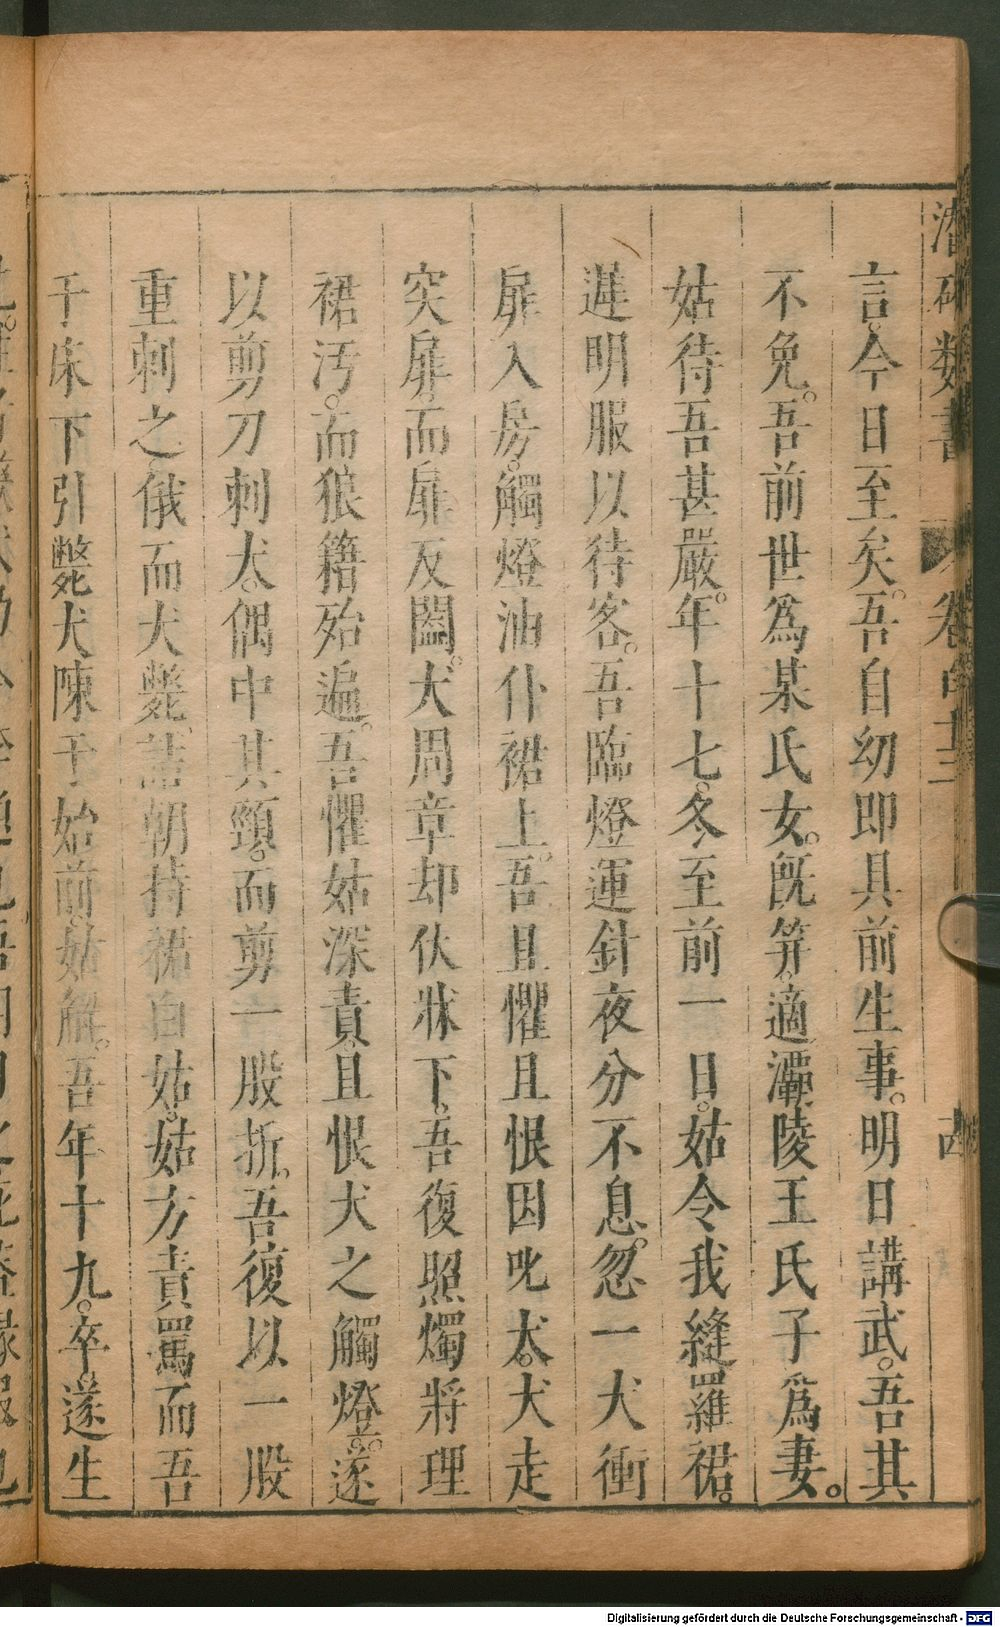 言。今日至矣。吾自幼即具前生事。明日講武。吾其
不免。吾前世為某氏女。既笄。適灞陵王氏子爲妻。
姑待吾甚嚴。年十七。冬至前一日。姑令我縫羅裙。
遲明服以待客。吾臨燈運針夜分不息。忽一犬衝
扉入房。觸燈油仆裙上。吾且懼且恨因叱犬。犬走
突扉。而扉反闔。犬周章却伏牀下。吾復照燭將理
裙汚。而狼籍殆遍。吾懼姑深責。且恨犬之觸燈。遂
以剪刀刺犬。偶中其頸。而剪一股折。吾復以一股
重刺之。俄而犬斃。詰朝持裙白姑。姑方責罵而吾
于床下引斃犬陳于姑前。姑解。吾年十九。卒。遂生
潛確類書
卷
Digitalisierung gefördert durch die Deutsche Forschungsgemeinschaft - DFG